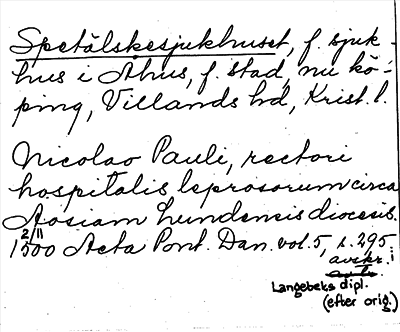 Spetälskesjukhuset, f. sjuk-
hus i Åhus, f. stad, nu kö-
ping, Villands hd, Krist. l.
Nicolao Pauli, rectori
hospitalis leprosorum circa
Aosiam Lundensis diocesis.
2/11
1500 Acta Pont. Dan. vol. 5, s. 295
avskr. i
Langebeks dipl.
(efter orig.)